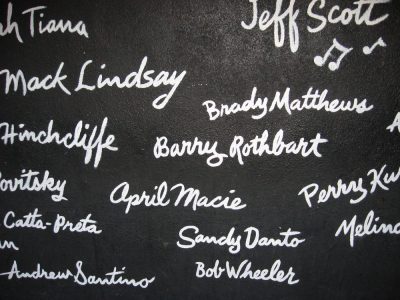 ah Tiana
Jeff Scott
Mack Lindsay
Brady Matthews
Hinchcliffe
Barry Rothbart
A
ovitsky
April Macie
Perry Ku
Catta-Preta
Melind
an
Sandy Danto
Andrew Santino
Bob Wheeler